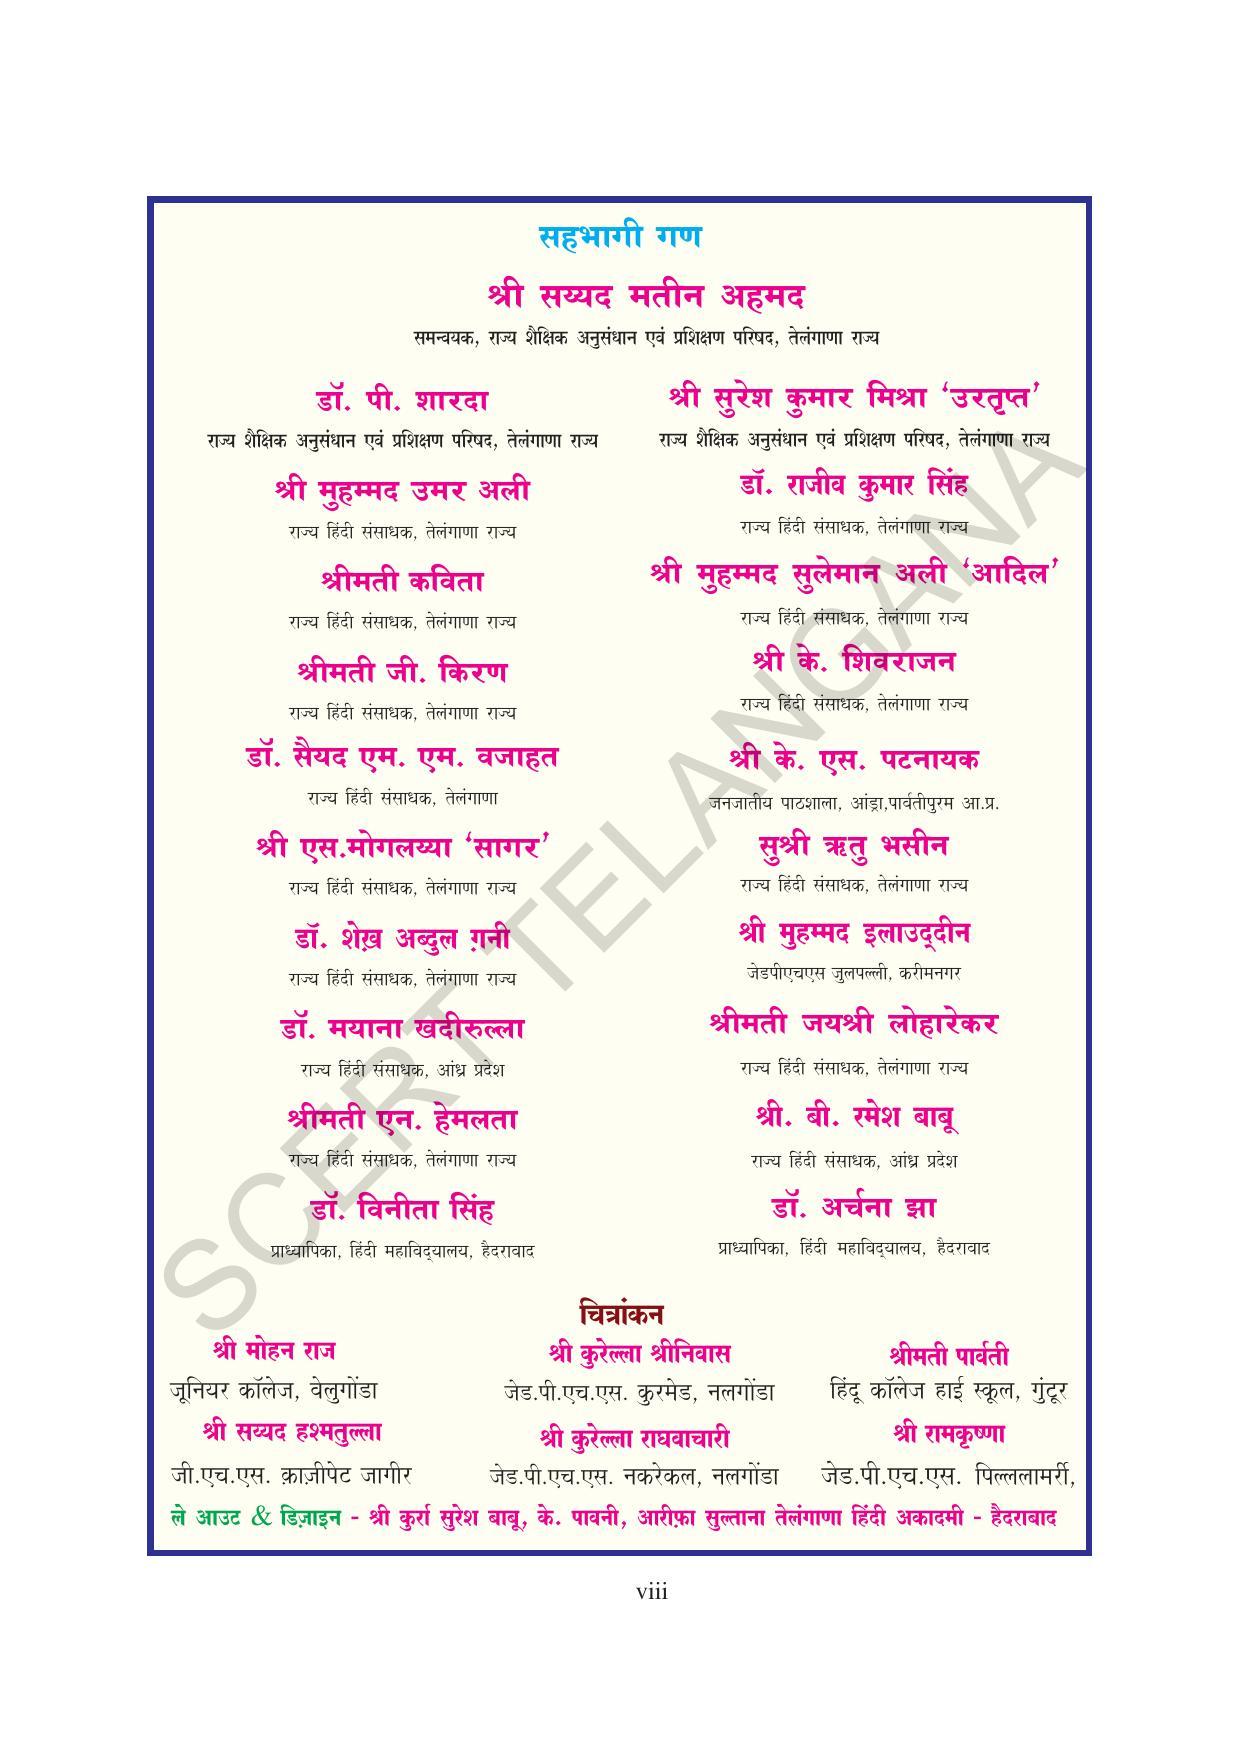 सहभागी गण
श्री सय्यद मतीन अहमद
समन्वयक, राज्य शैक्षिक अनुसंधान एवं प्रशिक्षण परिषद, तेलंगाणा राज्य
डॉ. पी. शारदा
राज्य शैक्षिक अनुसंधान एवं प्रशिक्षण परिषद, तेलंगाणा राज्य
श्री मुहम्मद उमर अली
राज्य हिंदी संसाधक, तेलंगाणा राज्य
श्रीमती कविता
राज्य हिंदी संसाधक, तेलंगाणा राज्य
श्रीमती जी. किरण
राज्य हिंदी संसाधक, तेलंगाणा राज्य
डॉ. सैयद एम. एम. वजाहत
राज्य हिंदी संसाधक, तेलंगाणा
श्री एस.मोगलय्या ‘सागर’
राज्य हिंदी संसाधक, तेलंगाणा राज्य
डॉ. शेख़ अब्दुल ग़नी
राज्य हिंदी संसाधक, तेलंगाणा राज्य
डॉ. मयाना खदीरुल्ला
राज्य हिंदी संसाधक, आंध्र प्रदेश
श्रीमती एन. हेमलता
राज्य हिंदी संसाधक, तेलंगाणा राज्य
डॉ. विनीता सिंह
प्राध्यापिका, हिंदी महाविद्‌यालय, हैदराबाद
श्री सुरेश कुमार मिश्रा ‘उरतृप्त’
राज्य शैक्षिक अनुसंधान एवं प्रशिक्षण परिषद, तेलंगाणा राज्य
डॉ. राजीव कुमार सिंह
राज्य हिंदी संसाधक, तेलंगाणा राज्य
श्री मुहम्मद सुलेमान अली ‘आदिल’
राज्य हिंदी संसाधक, तेलंगाणा राज्य
श्री के. शिवराजन
राज्य हिंदी संसाधक, तेलंगाणा राज्य
श्री के. एस. पटनायक
जनजातीय पाठशाला, आंड्रा,पार्वतीपुरम आ.प्र.
सुश्री ऋतु भसीन
राज्य हिंदी संसाधक, तेलंगाणा राज्य
श्री मुहम्मद इलाउद्‌दीन
जेडपीएचएस जुलपल्ली, करीमनगर
श्रीमती जयश्री लोहारेकर
राज्य हिंदी संसाधक, तेलंगाणा राज्य
श्री. बी. रमेश बाबू
राज्य हिंदी संसाधक, आंध्र प्रदेश
डॉ. अर्चना झा
प्राध्यापिका, हिंदी महाविद्‌यालय, हैदराबाद
चित्रांकन
श्री मोहन राज
जूनियर कॉलेज, वेलुगोंडा
श्री सय्यद हश्मतुल्ला
जी.एच.एस. क़ाज़ीपेट जागीर
श्री कुरेल्ला श्रीनिवास
जेड.पी.एच.एस. कुरमेड, नलगोंडा
श्री कुरेल्ला राघवाचारी
जेड.पी.एच.एस. नकरेकल, नलगोंडा
श्रीमती पार्वती
हिंदू कॉलेज हाई स्कूल, गुंटूर
श्री रामकृष्णा
जेड.पी.एच.एस. पिल्ललामर्री,
ले आउट & डिज़ाइन - श्री कुर्रा सुरेश बाबू, के. पावनी, आरीफ़ा सुल्ताना तेलंगाणा हिंदी अकादमी - हैदराबाद
SCERT TELANGANA
viii